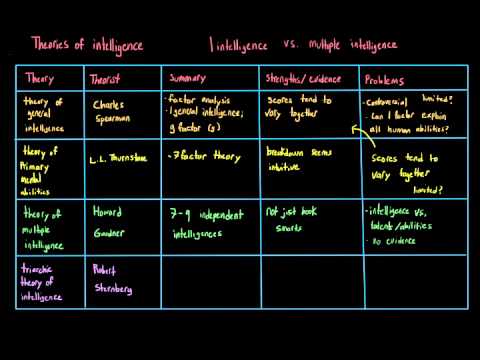 Theories of intelligence
1 intelligence vs. multiple intelligence
Theory
Theorist
Summary
Strengths/evidence
Problems
theory of
general
intelligence
Charles
Spearman
• factor analysis
• 1 general intelligence;
g factor (g)
scores tend to
vary together
• controversial limited?
• Can 1 factor explain
all human abilities?
theory of
Primary
mental
abilities
L.L. Thurnstone
• 7 factor theory
breakdown seems
intuitive
scores tend to
vary together
limited?
theory of
multiple
intelligence
Howard
Gardner
7-9 independent
intelligences
not just book
smarts
• intelligence vs.
talents/abilities
• no evidence
triarchic
theory of
intelligence
Robert
Sternberg